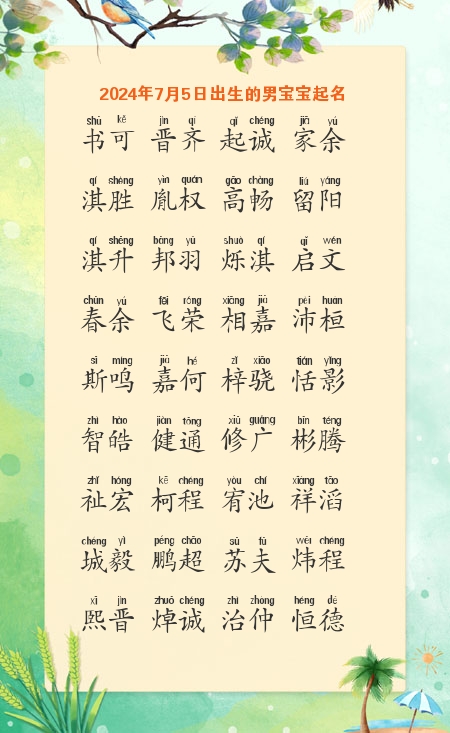 2024年7月5日出生的男宝宝起名
shū kě jìn qí qǐ chéng jiā yú
书可 晋齐 起诚 家余
qí shèng yìn quán gāo chàng liú yáng
淇胜 胤权 高畅 留阳
qí shēng bāng yǔ shuò qí qǐ wén
淇升 邦羽 烁淇 启文
chūn yú fēi róng xiāng jiā pèi huán
春余 飞荣 相嘉 沛桓
sī míng jiā hé zǐ xiāo tián yǐng
斯鸣 嘉何 梓骁 恬影
zhì hào jiàn tōng xiū guǎng bīn téng
智皓 健通 修广 彬腾
zhǐ hóng kē chéng yòu chí xiáng tāo
祉宏 柯程 宥池 祥滔
chéng yì péng chāo sū fū wěi chéng
城毅 鹏超 苏夫 炜程
xī jìn zhuō chéng zhì zhòng héng dé
熙晋 焯诚 治仲 恒德